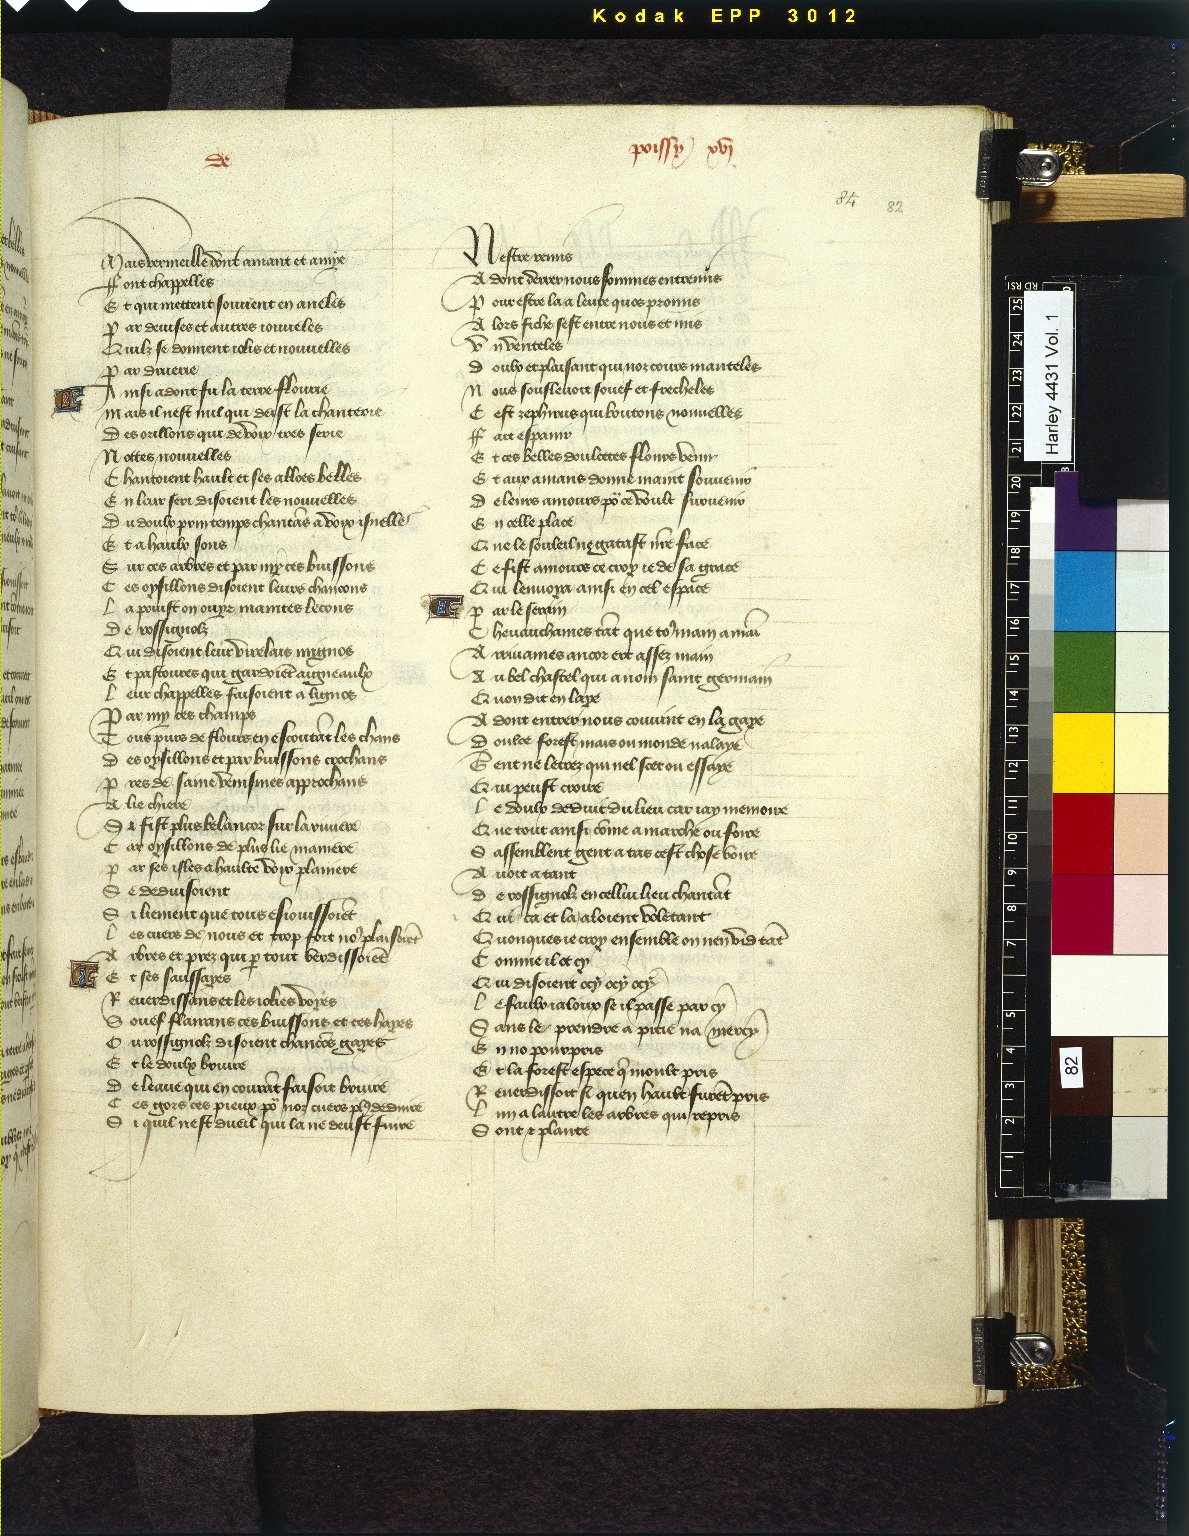 Kodak EPP 3012
de
poissy xvj
84 82
Mais vermeille dont amant et amye
Font chappelles
Et qui mettent souuent en aneles
Par deuises et autres ioueles
Quilz se donnent iolis et nouuelles
Par druerie
Ainsi adont fu la terre flourie
Mais il nest nul qui deist la chanterie
Des oisillons qui de voix tres serie
Nottes nouuelles
Chantoient hault et ses alloes belles
En leur seri disoient les nouuelles
Du doulx printemps chantās a voix isnelle
Et a haulx sons
Sur ces arbres et par my ces buissons
Ces oysillons disoient leurs chancons
La peuist on ouyr maintes lecons
De rossignolz
Qui disoient leur virelais mignos
Et pastoures qui gardoiēt aigneaulx
Leur chappelles faisoient a lignos
Par my ces champs
Tous puis de flours en escoutāt les chans
Des oysillons et par buissons crochans
Pres de saine venismes approchans
A lie chiere
Si fist plus bel ancor sur la riuiere
Car oysillons de plus lie maniere
Par ses isles a haulte voix planiere
Se deduisoient
Si liement que tous esiouissoiēt
Les cuers de nous et trop fort noꝰ plaisoiēt
Arbres et prez qui ꝑ tout verdissoiēt
Et ses saussayes
Reuerdissans et les iolies voyes
Souef flairans ces buissons et ces hayes
Ou rossignolz disoient chancōs gayes
Et le doulx bruire
De leaue qui en courāt faisoit bruire
Ces gors ces pieux poʳ noz cuers plꝰ deduire
Si quil nest dueil qui la ne deust fuire
Nestre venus
Adont derrer nous sommes entreuis
Pour estre la a leure quos promis
Alors fiche sest entre nous et mis
Vn venteles
Doulx et plaisant qui noz cours manteles
Nous sousleuoit souef et frecheles
Cest zephirus qui boutons nouuelles
Fait espanir
Et ces belles doulcetes flours venir
Et aux amans donne maint souuenir
De leurs amours poʳ ce voult suruenir
En celle place
Que le souleil ne gatast nr̄e face
Ce fist amours ce croy ie de sa grace
Qui lenuoya ainsi en cel espace
Par le serain
Cheuauchames tāt que toꝰ main a mai
Arriuames ancor ert assez main
Au bel chastel qui a nom saint germain
Quon dit en laye
Adont entrer nous couuint en la gaye
Doulce forest mais on monde nalaye
Gent ne lerrez qui nel scet ou essaye
Qui peust croire
Le doulx deduit du lieu car iay memoire
Que tout ainsi cōme a marche ou foire
Sassemblent gent a tas cest chose voire
Auoit a tant
De rossignolz en cellui lieu chantāt
Qui ca et la aloient voletant
Quonques ie croy ensemble on nen vid tāt
Comme il ot cy
Qui disoient ocy ocy ocy
Le faulx ialoux se il passe par cy
Sans le prendre a pitie na mercy
En no pourpris
Et la forest espece qͥ moult pris
Reuerdissoit si quen hault furēt pris
Lun a lautre les arbres qui repris
Sont et plante
Harley 4431 Vol. 1
82